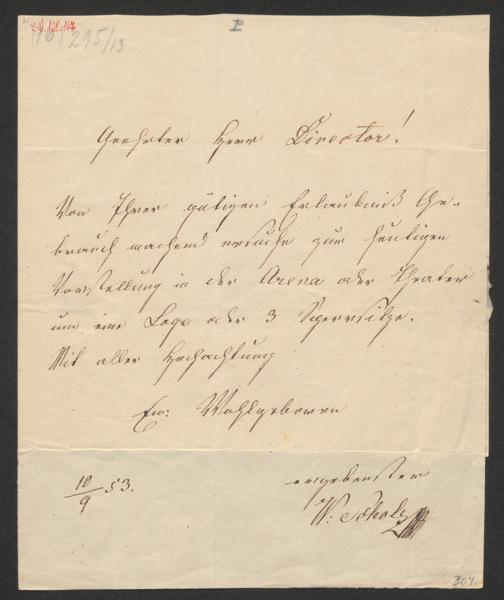 I
295/13
Geehrter Herr Director!
Von Ihrer gütigen Erlaubniß Ge-
brauch machend ersuche zur heutigen
Vorstellung in der Arena oder Theater
um eine Loge oder 3 Sperrsitze.
Mit aller Hochachtung
Eu: Wohlgeboren
ergebenster
10/9 53.
W: Scholz
304.